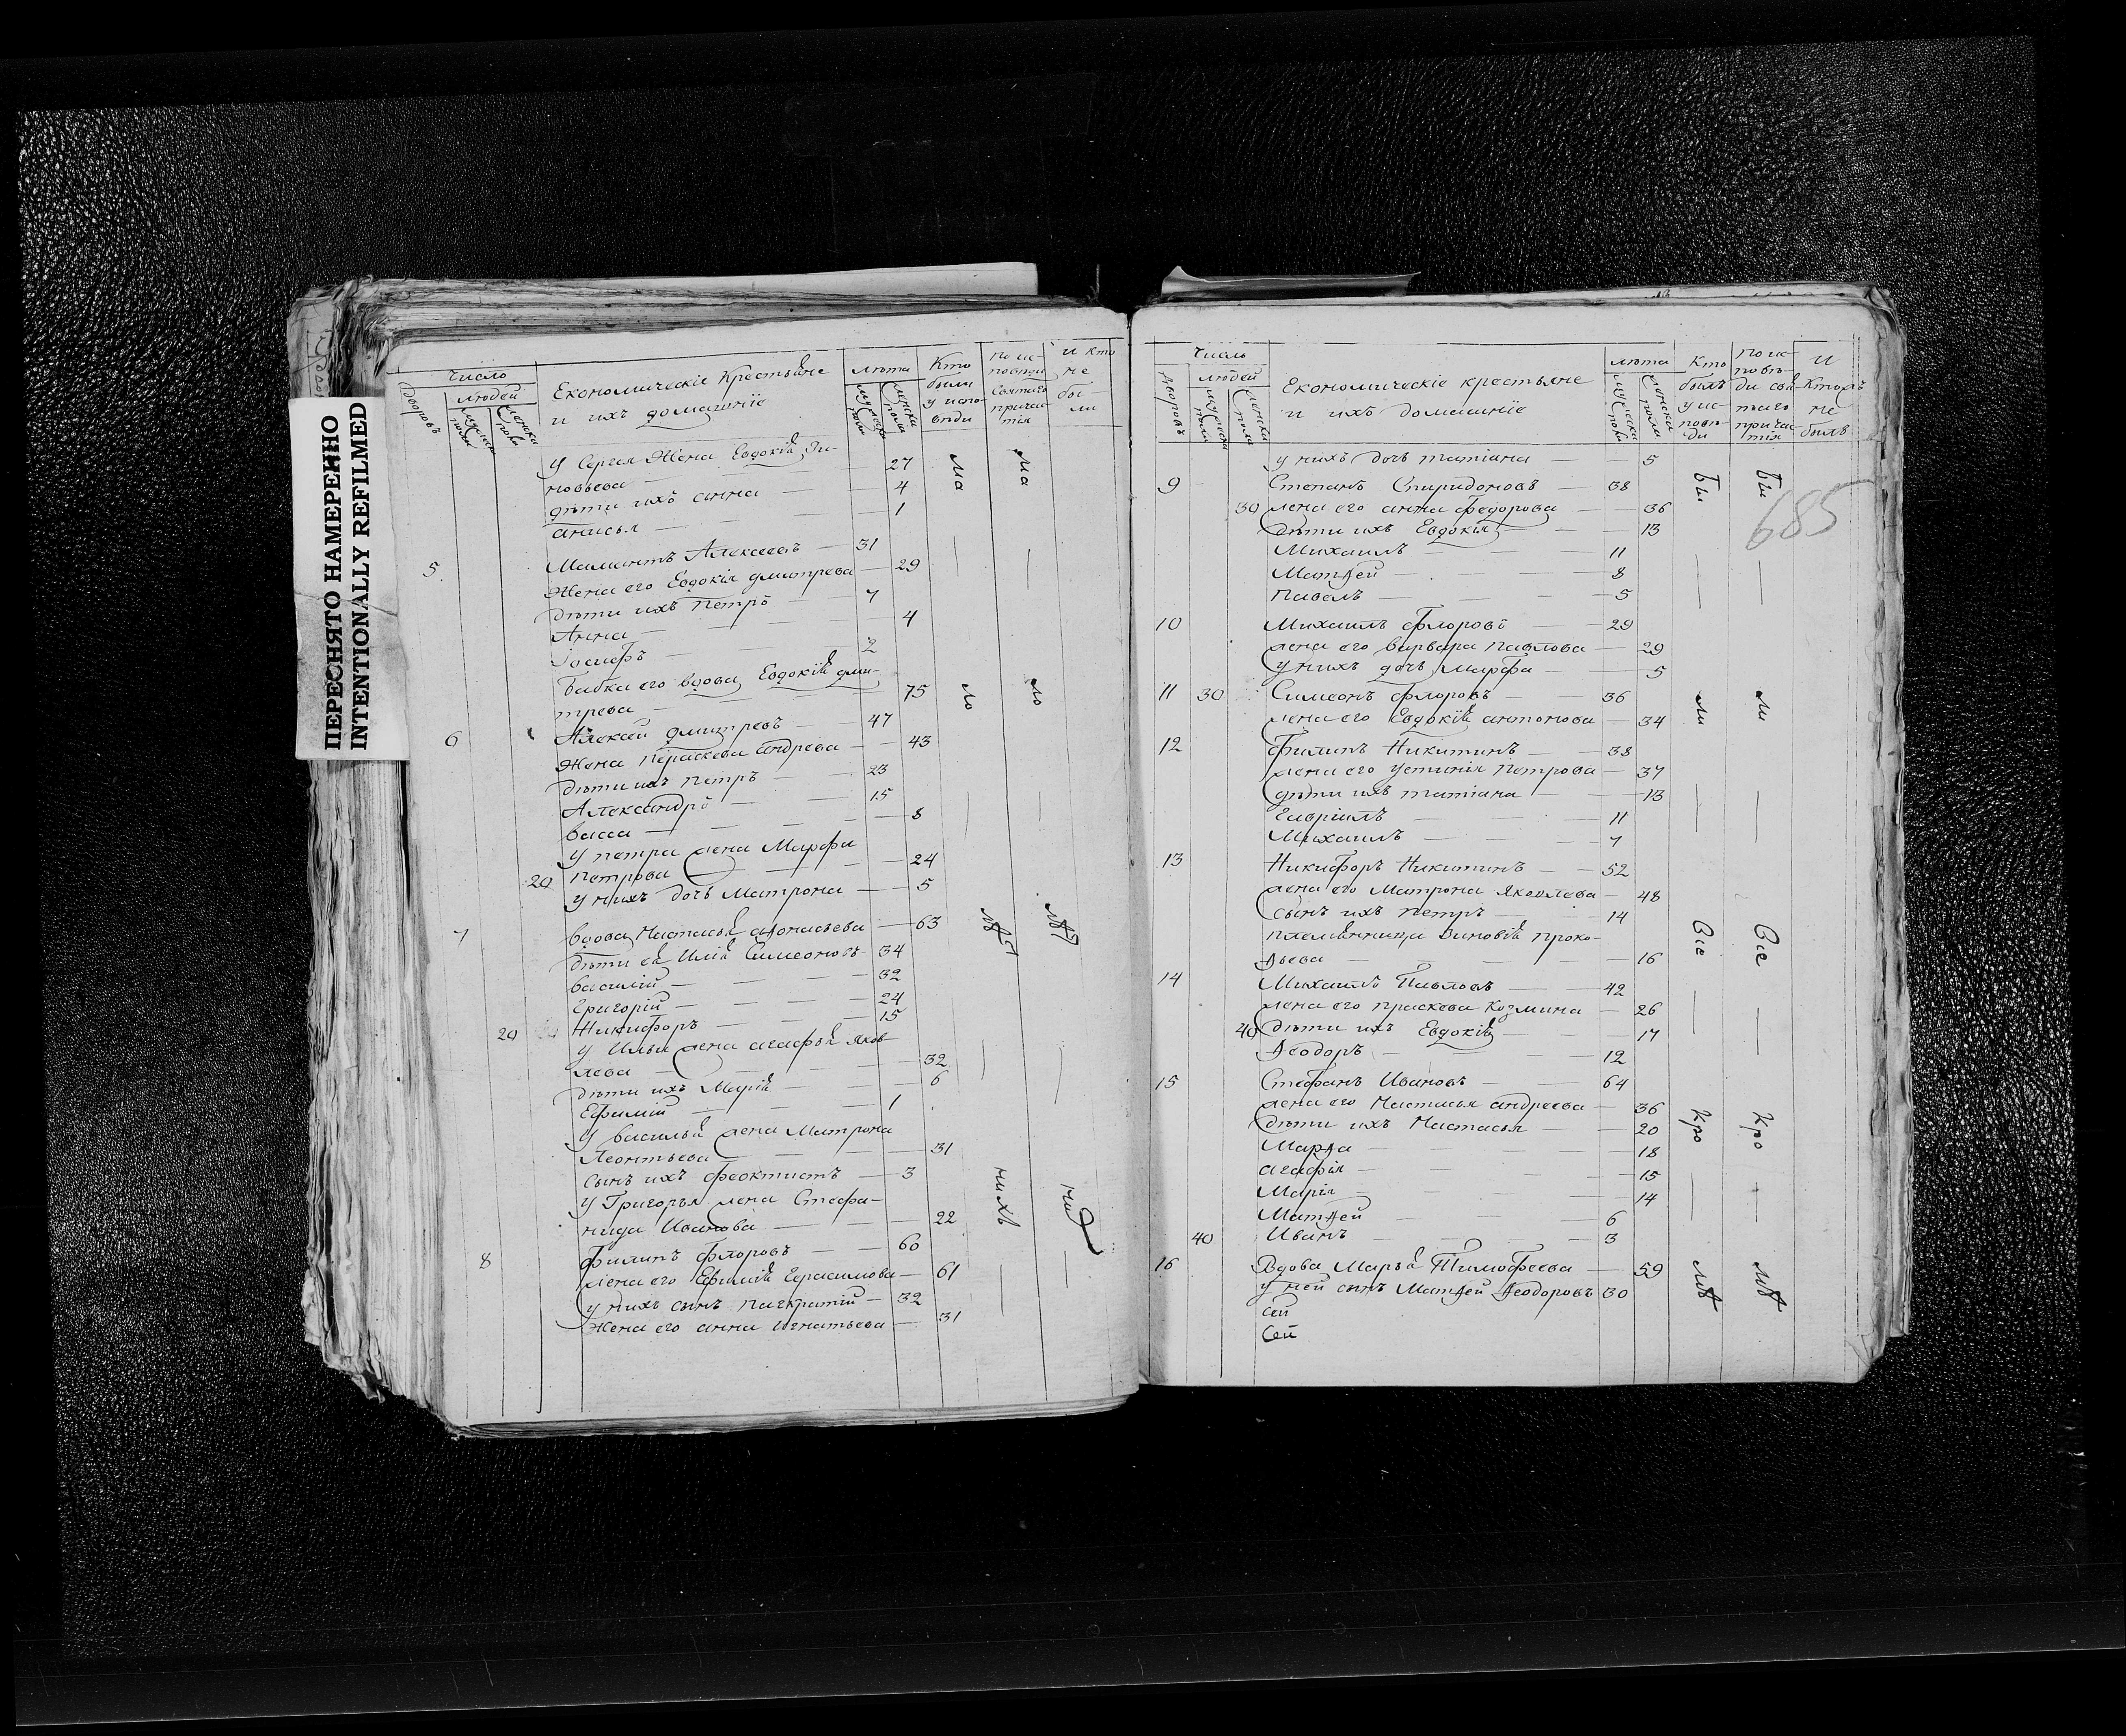 ПЕРЕСНЯТО НАМЕРЕННО
INTENTIONALLY REFILMED
число
Дворовъ
людей
Економическіе Крестьяне
и ихъ домашніе
лѣта
Кто были у испо-вѣди
По ис-повѣди святаго причас-тія
и кто не бы-ли
У Сергея Жена Евдокія Зи-
новьева — 27
дѣти ихъ анна — 4
анисья — 1
5 Мамонтъ Алексеевъ — 31
Жена его Евдокія дмитрева — 29
дѣти ихъ Петръ — 7
Анна — 4
Іосифъ — 2
Бабка его вдова Евдокія дми-
трева — 75
6 Алексей дмитревъ — 47
Жена Пераскева андрева — 43
дѣти ихъ Петръ — 23
Александръ — 15
васса — 8
У петра жена Марфа
20 Петрова — 24
у нихъ дочь Матрона — 5
7 вдова Настасья афонасьева — 63
дѣти ея Илія Симеоновъ 34
василій — 32
Григорій — 24
20 Никифоръ — 15
У Ильи жена агафья яков-
лева — 32
дѣти ихъ Марія — 6
Ефимій — 1
У василья жена Матрона
Леонтьева — 31
сынъ ихъ феоктистъ — 3
У Григорья жена Стефа-
нида Иванова — 22
8 Филипъ Флоровъ — 60
жена его Ефимія Герасимова — 61
у нихъ сынъ Панкратій — 32
Жена его анна игнатьева — 31
число
Дворовъ
людей
Економическіе крестьяне
и ихъ домашніе
лѣта
Кто былъ у ис-повѣ-ди
По ис-повѣ-ди свя-таго причас-тія
и не былъ
685
у нихъ дочь татіана — 5
9 Степанъ Спиридоновъ — 38
30 жена его анна федорова — 36
дѣти ихъ Евдокія — 13
Михаилъ — 11
Матѳей — 8
Павелъ — 5
10 Михаилъ флоровъ — 29
жена его варвара Павлова — 29
у нихъ дочь Марфа — 5
11 30 Симеонъ флоровъ — 36
жена его Евдокія антонова — 34
12 Филипъ Никитинъ — 38
жена его устинія Петрова — 37
дѣти ихъ татіана — 13
Гавріилъ — 11
Михаилъ — 7
13 Никифоръ Никитинъ — 52
жена его Матрона Яковлева — 48
сынъ ихъ Петръ — 14
племянница Зиновія проко-
фьева — 16
14 Михаилъ Павловъ — 42
жена его праскева Козмина — 26
40 дѣти ихъ Евдокія — 17
Ѳеодоръ — 12
15 Стефанъ Ивановъ — 64
жена его Настасья андреева — 36
дѣти ихъ Настасья — 20
Марѳа — 18
агафія — 15
Марія — 14
Матѳей — 6
40 Иванъ — 3
16 Вдова Марья Тимофеева — 59
у ней сынъ Матѳей Ѳеодоровъ 30
сей